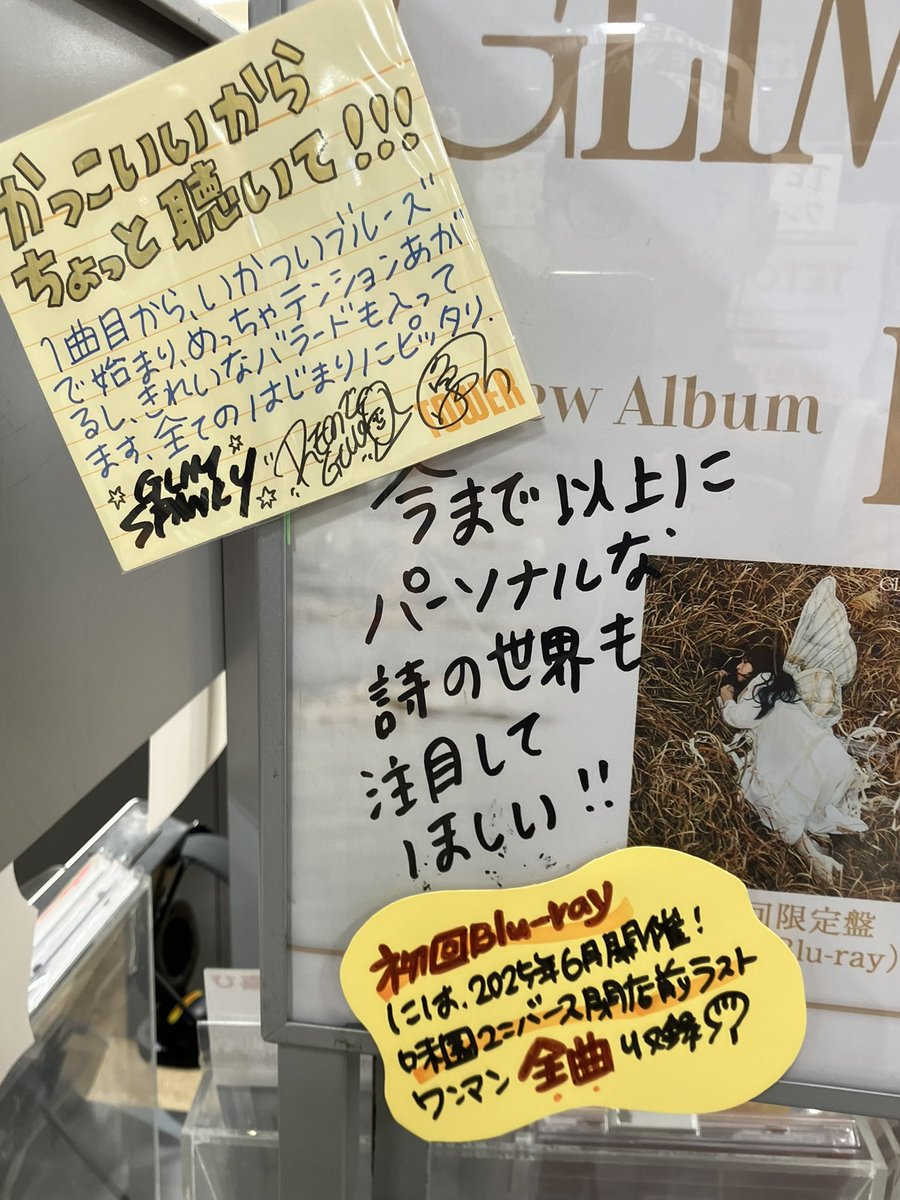 かっこいいから
ちょっと聴いて!!!
1曲目から、いかついブルーズ
で始まり、めっちゃテンションあが
るし、きれいなバラードも入って
ます。全てのはじまりにピッタリ.
GLIM
SPANKY
TOWER
GLIM
New Album
今まで以上に
パーソナルな
詩の世界も
注目して
ほしい!!
GL
回限定盤
Blu-ray)
初回Blu-ray
には、2025年6月開催!
味園ユニバース閉店前ラスト
ワンマン全曲収録